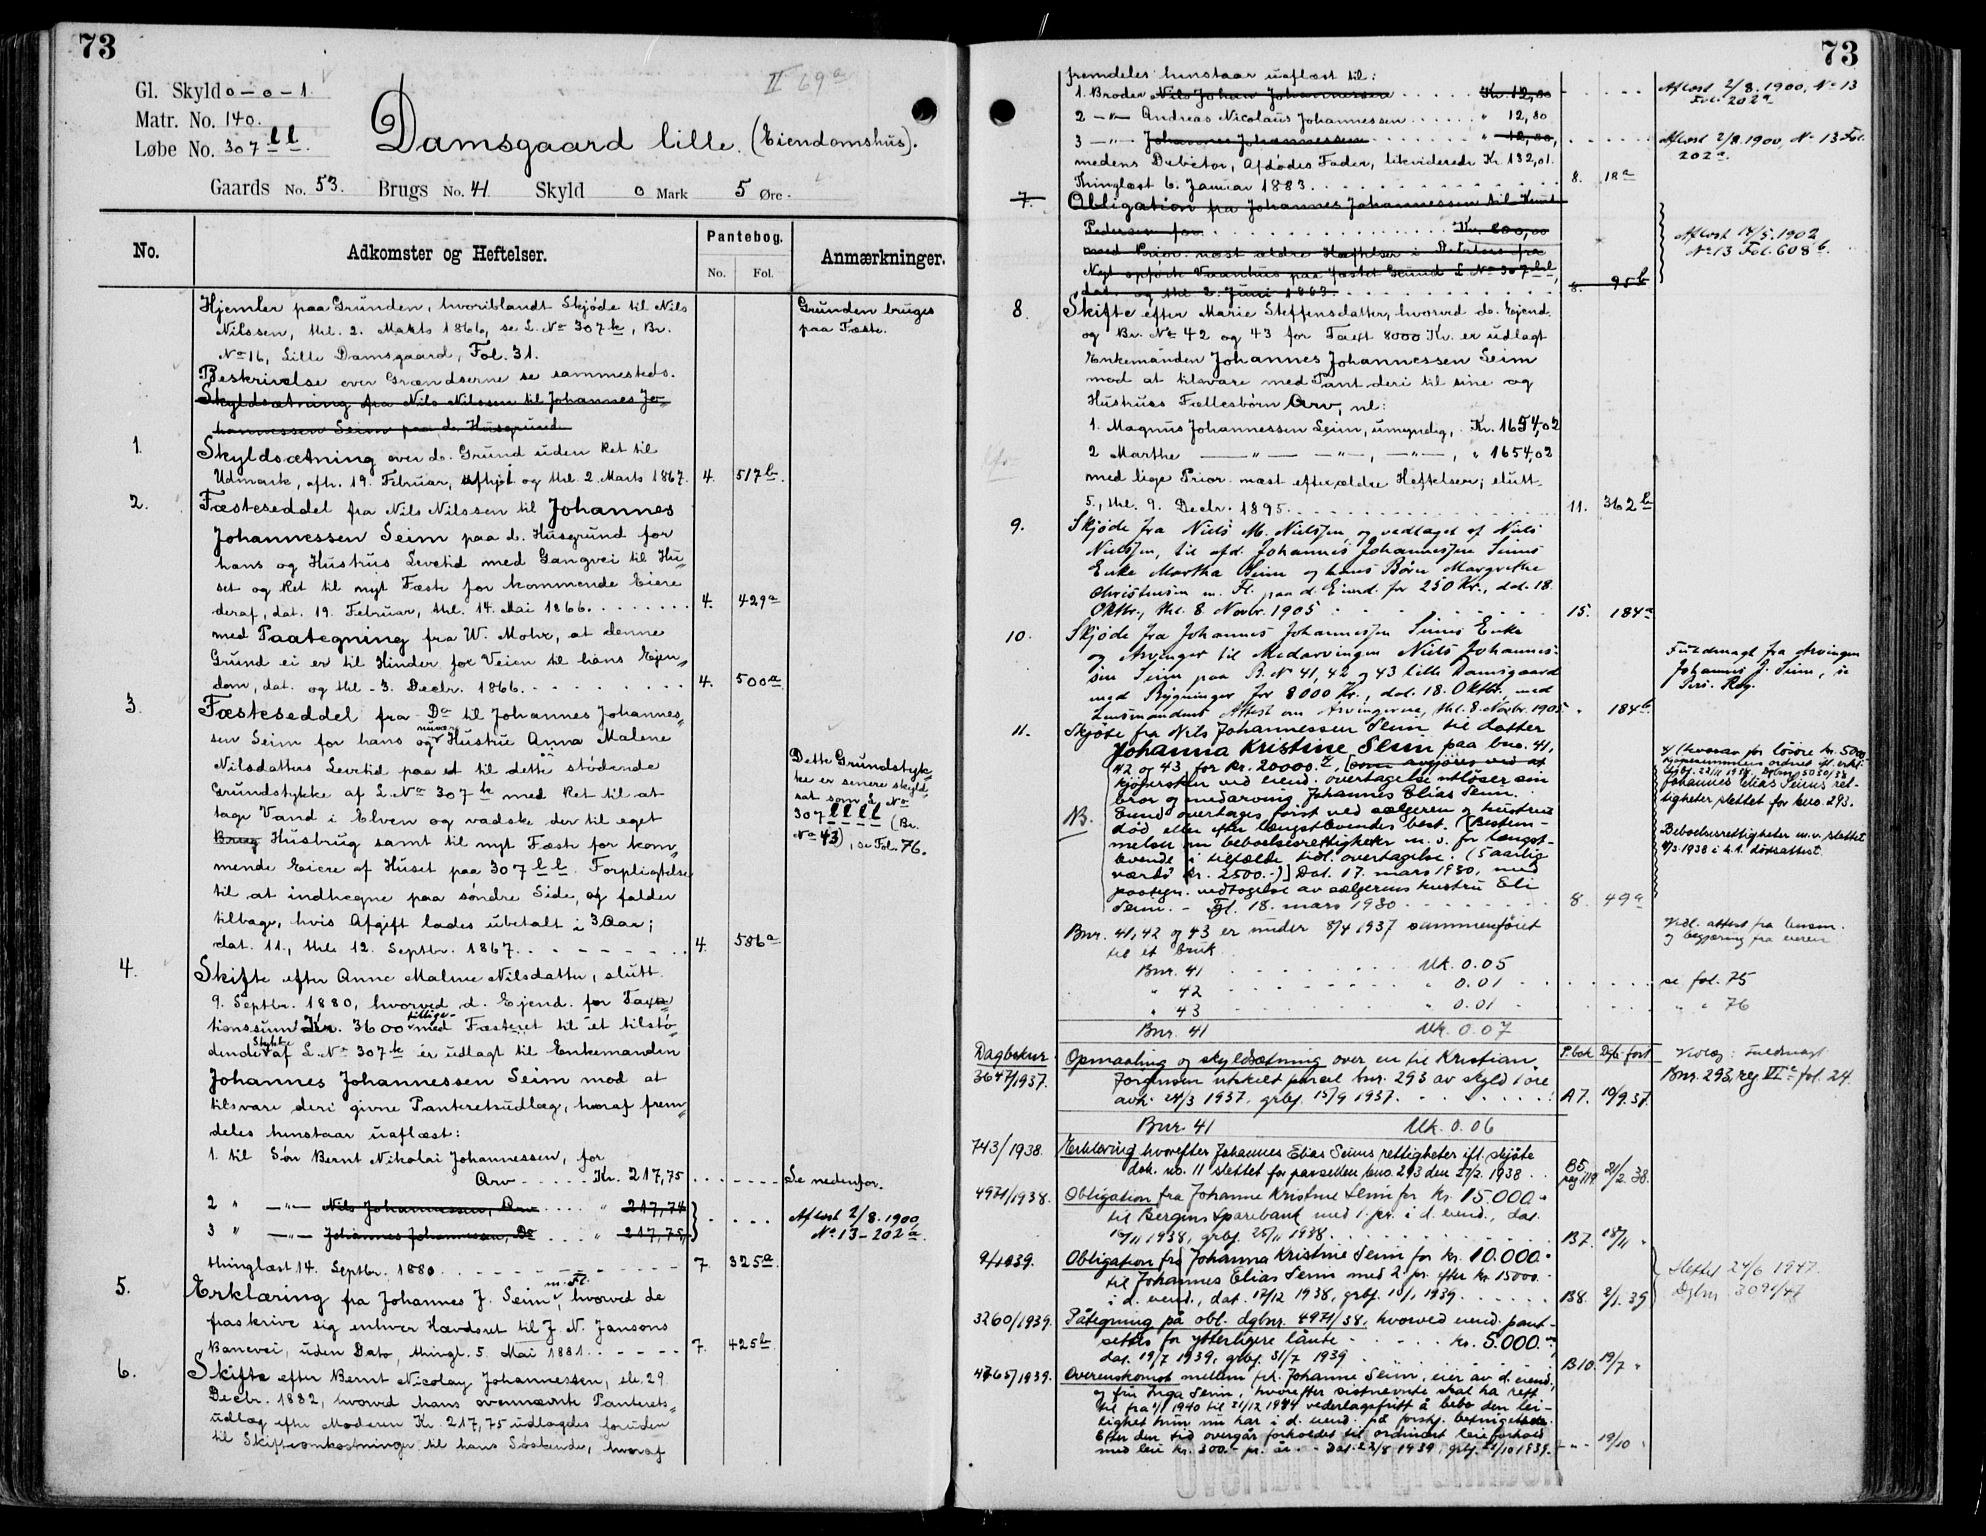 73
II 69a
Gl. Skyld 0-0-1
Matr. No. 140.
Løbe No. 307 ll
Damsgaard lille. (Eiendomshus).
Gaards No. 53. Brugs No. 41 Skyld 0 Mark 5 Øre.
No. Adkomster og Heftelser. Pantebog. No. Fol. Anmærkninger.
Hjemler paa Grunden, hvoriblandt Skjøde til Nils
Nilssen, thl. 2. Marts 1866, se L. No 307 k, Br.
No 16, Lille Damsgaard, Fol. 31.
Grunden bruges
paa Fæste.
Beskrivelse over Grændserne se sammesteds.
Skyldsætning fra Nils Nilssen til Johannes Jo-
hannessen Seim paa d. Husgrund
1. Skyldsætning over do. Grund uden Ret til
Udmark, afh. 19. Februar, afhjt. og thl. 2. Marts 1867. 4. 517b.
2. Fæsteseddel fra Nils Nilssen til Johannes
Johannessen Seim paa d. Husgrund for
hans og Hustrus Levetid med Gangvei til Hu-
set og Ret til nyt Fæste for kommende Eiere
deraf, dat. 19. Februar, thl. 14. Mai 1866. 4. 429a
med Paategning fra W. Mohr, at denne
Grund ei er til Hinder for Veien til hans Ejen-
dom, dat. og thl. 3. Decbr. 1866. 4. 500a
3. Fæsteseddel fra Do til Johannes Johannes-
sen Seim for hans og nuvær. Hustru Anna Malene
Nilsdatters Levetid paa et til dette stødende
Grundstykke af L. No 307 k med Ret til at
tage Vand i Elven og vadske der til eget
Brug Husbrug samt til nyt Fæste for kom-
mende Eiere af Huset paa 307 ll. Forpligtelse
til at indhegne paa søndre Side, og falder
tilbage, hvis Afgift lades ubetalt i 3 Aar;
dat. 11., thl. 12. Septbr. 1867. 4. 586a
Dette Grundstyk-
ke er senere skyld-
sat som L. No
307 llll (Br.
No 43), se Fol. 76.
4. Skifte efter Anne Malene Nilsdatter, slutt.
9. Septbr. 1880, hvorved d. Ejend. for Taxa-
tionssum Kr. 3600 tillige- med Fæsteret til et tilstø-
dende Stykke af L. No 307 k er udlagt til Enkemanden
Johannes Johannessen Seim mod at
tilsvare deri givne Panteretsudlæg, hvoraf frem-
deles henstaar uaflæst:
1. til Søn Bernt Nikolai Johannessen, for
Arv Kr. 217,75 Se nedenfor.
2 " —"— Nils Johannessen, Arv " 217,74
3 " —"— Johannes Johannessen, Do " 217,75
Aflæst 2/8. 1900,
No 13 - 202a.
thinglæst 14. Septbr. 1880 7. 325a
5. Erklæring fra Johannes J. Seim m. Fl., hvorved de
fraskrive sig enhver Hævdsret til J. N. Jansons
Banevei, uden Dato, thingl. 5. Mai 1881. 7. 425b
6. Skifte efter Bernt Nicolay Johannessen, slt. 29.
Decbr. 1882, hvorved hans ovennævnte Panterets-
udlæg efter Moderen Kr. 217,75 udlagdes foruden
til Skifteomkostninger til hans Søskende, hvoraf
73
fremdeles henstaar uaflæst til:
1. Broder Nils Johan Johannessen Kr. 12,80 Aflæst 2/8. 1900, No 13
Fol. 202a
2 —"— Andreas Nicolaus Johannessen " 12,80
3 —"— Johannes Johannessen " 12,80, Aflæst 2/8. 1900, No 13 Fol.
202a.
medens Debitor, Afdødes Fader, likviderede Kr. 132,01.
Thinglæst 6. Januar 1883. 8. 18a
7. Obligation fra Johannes Johannessen til Knut
Pedersen for Kr. 800,00
med Prior. næst ældre Hæftelser i
Nyt opført Vaanhus paa fæstet Grund L. No 307 ll,
dat. og thl. 2. Juni 1883. 8. 95b
Aflæst 14/5. 1902
No 13 Fol. 608b.
8. Skifte efter Marie Steffensdatter, hvorved do. Ejend.
og Br. No 42 og 43 for Taxt 8000 Kr. er udlagt
Enkemanden Johannes Johannessen Seim
mod at tilsvare med Pant deri til sine og
Hustrues Fællesbørn Arv, nl:
1. Magnus Johannessen Seim, umyndig, Kr. 1654,02
2 Marthe —"— —"—, —"—, " 1654,02
med lige Prior. næst efter ældre Heftelser; slutt.
5., thl. 9. Decbr. 1895. 11. 362b
9. Skjøde fra Niels M. Nielssen, og vedtaget af Niels
Nielssen, til afd. Johannes Johannessen Seims
Enke Martha Seim og hans Børn Margrethe
Christensen m. Fl. paa d. Eiend. for 250 Kr., dat. 18.
Oktbr., thl. 8. Novbr. 1905 15. 184a
10. Skjøde fra Johannes Johannessen Seims Enke
og Arvinger til Medarvingen Niels Johannes-
sen Seim paa B. No 41, 42 og 43 lille Damsgaard
med Bygninger for 8000 Kr., dat. 18. Oktbr. med
Lensmandens Attest om Arvingerne, thl. 8. Novbr. 1905 " 184b
Fuldmagt fra Arvingen
Johannes J. Seim, se
Pers. Reg.
11. Skjøte fra Nils Johannessen Seim til datter
Johanna Kristine Seim paa bno. 41,
42 og 43 for kr. 20000.-, som avgjøres ved at
kjøpersken ved eiend. overtagelse utløser sin
bror og medarving Johannes Elias Seim.
NB. Eiend. overtages først ved sælgeren og hustrues
død eller efter længstlevendes best. (Bestem-
melser om beboelsesrettigheter m. v. for længst-
levende i tilfælde tidl. overtagelse. (5 aarlig
værdi kr. 2500.-)] Dat. 17. mars 1930, med
paategn. vedtagelse av sælgerens hustru Eli
Seim. - Tgl. 18. mars 1930 8. 49a
x/ (hvorav for løsøre kr. 5000
Johannes Elias Seims ret-
tigheter slettet for bno. 293.
Beboelsesrettigheter m. v. slettet
Bnr. 41, 42 og 43 er under 8/4 1937 sammenføiet
til et bruk
Vedl. attest fra lensm.
og begjæring fra eieren
Bnr. 41 Mk. 0.05
" 42 " 0.01 se fol. 75
" 43 " 0.01 " " 76
Bnr. 41 Mk. 0.07
Dagboknr. P. bok Dgb. ført
3647/1937. Opmaaling og skyldsætning over en til Kristian
Jørgensen utskilt parcel bnr. 293 av skyld 1 øre
avh. 24/3 1937, grbf. 15/9 1937. A7. 10/9.37.
Bnr. 293, reg VIc fol. 24.
Bnr. 41 Mk. 0.06
743/1938. Erklæring hvorefter Johannes Elias Seims rettigheter ifl. skjøte
dok. no. 11 slettet for parsellen bno. 293 den 27/2 1938 B5 pag 119 21/2.38.
4971/1938. Obligation fra Johanne Kristine Seim for kr. 15.000.-
til Bergens Sparebank med 1. pr. i d. eiend., dat.
16/11 1938, grbf. 25/11 1938. B7. 18/11 "
9/1939. Obligation fra Johanna Kristine Seim for kr. 10.000.-
til Johannes Elias Seim med 2. pr. efter kr. 15000.-
i d. eiend., dat. 17/12 1938, grbf. 10/1 1939. B8. 2/1. 39
Slettet 24/6 1947.
Dgbnr. 3091/47
3260/1939. Påtegning på obl. dgbnr. 4971/38, hvorved eiend. pant-
settes for ytterligere lånte kr. 5.000.-
dat. 19/7 1939, grbf. 31/7 1939 B10. 19/7 "
4765/1939. Overenskomst mellem frk. Johanne Seim, eier av d. eiend.,
og fru Inga Seim, hvorefter sistnevnte skal ha rett
til fra 1/1 1940 til 31/12 1944 vederlagsfritt å bebo den lei-
lighet hun nu har i d. eiend. på forskj. betingelser.
Efter den tid overgår forholdet til ordinært leieforhold
med leie kr. 300.- pr. år. - Dat. 22/8 1939, grbf. 21/10 1939. - " - 19/10 "